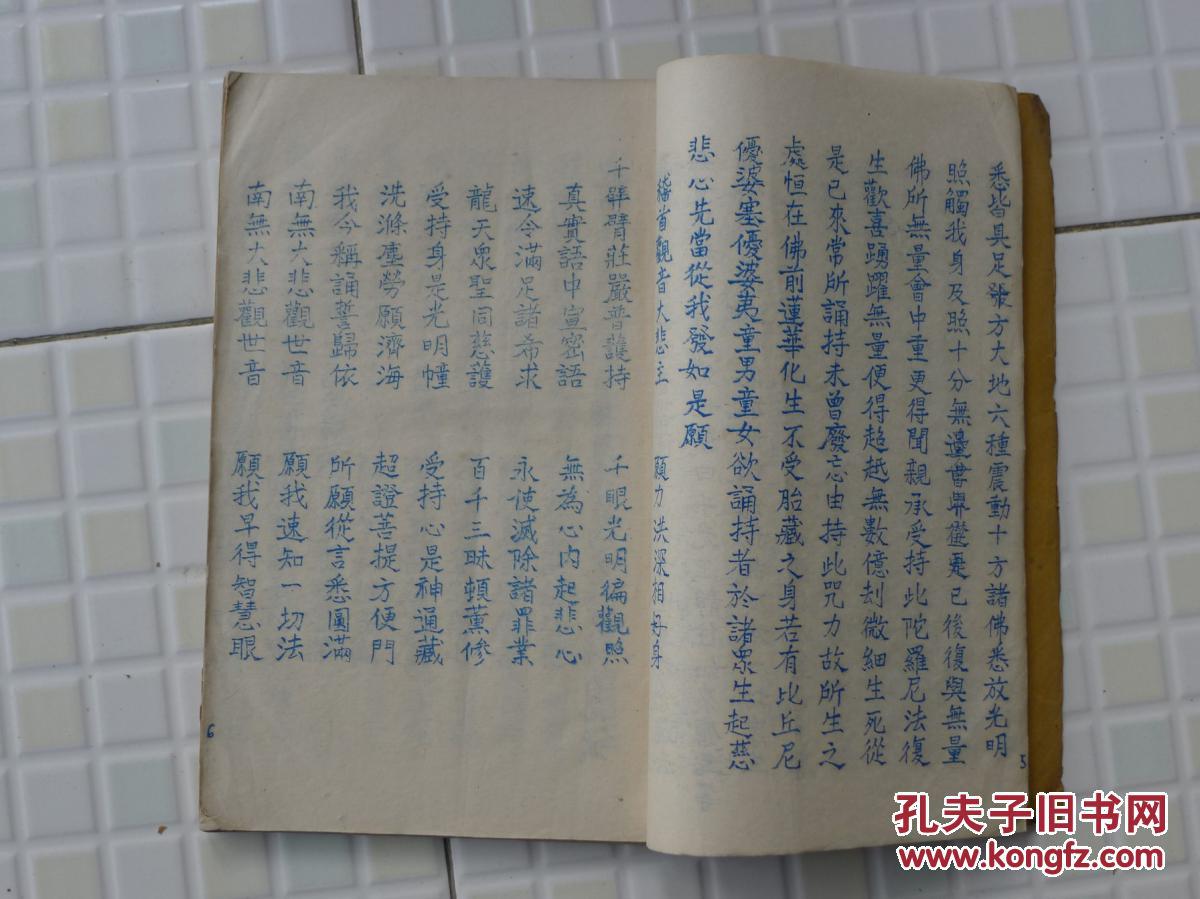 悉皆具足張方大地六種震動十方諸佛悉放光明
照觸我身及照十分無邊世界從是已後復與無量
佛所無量會中重更得聞親承受持此陀羅尼法復
生歡喜踴躍無量便得超越無數億刦微細生死從
是已來常所誦持未曾廢忘由持此咒力故所生之
處恒在佛前蓮華化生不受胎藏之身若有比丘尼
優婆塞優婆夷童男童女欲誦持者於諸眾生起慈
悲心先當從我發如是願
稽首觀音大悲主 願力洪深相好身
5
千臂莊嚴普護持 千眼光明徧觀照
真實語中宣密語 無為心内起悲心
速令滿足諸希求 永使滅除諸罪業
龍天眾聖同慈護 百千三昧頓薰修
受持身是光明幢 受持心是神通藏
洗滌塵勞願濟海 超證菩提方便門
我今稱誦誓歸依 所願從言悉圓滿
南無大悲觀世音 願我速知一切法
南無大悲觀世音 願我早得智慧眼
6
孔夫子旧书网
www.kongfz.com